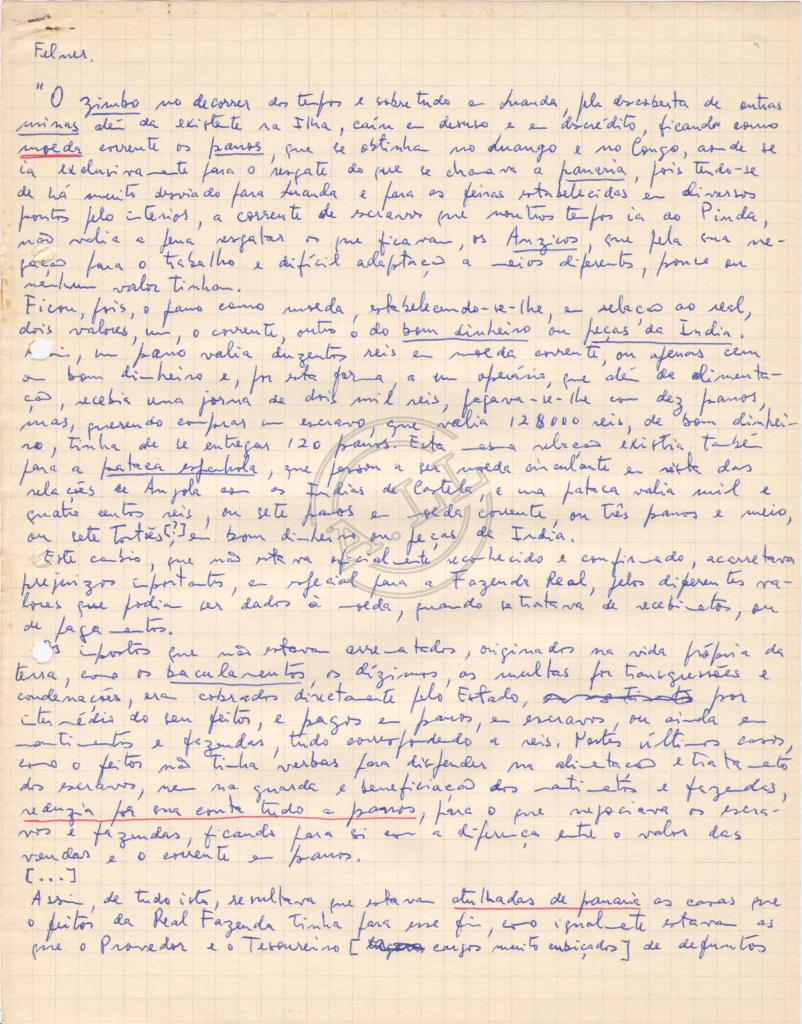 Felner.
"O zimbo no decorrer dos tempos e sobretudo em Luanda, pela descoberta de outras
minas além da existente na Ilha, caíu em desuso, e em descrédito, ficando como
moeda corrente os panos, que se obtinham no Luango e no Congo, aonde se
ia exclusivamente para o resgate do que se chamava a panaria, pois tendo-se
de há muito desviado para Luanda e para as feiras estabelecidas em diversos
pontos pelo interior, a corrente de escravos que noutros tempos ia ao Pinda,
não valia a pena resgatar os que ficavam, os Anzicos, que pela sua ne-
gação para o trabalho e difícil adaptação a meios diferentes, pouco ou
nenhum valor tinham.
Ficou, pois, o pano como moeda, estabelecendo-se-lhe, em relação ao real,
dois valores, um, o corrente, outro o do bom dinheiro ou peças da India.
um pano valia duzentos reis em moeda corrente, ou apenas cem
em bom dinheiro e, por esta forma, a um operário, que além da alimenta-
ção, recebia uma jorna de dois mil reis, pagava-se-lhe com dez panos,
mas, querendo comprar um escravo, que valia 128000 reis, de bom dinhei-
ro, tinha de se entregar 120 panos. Esta mesma relação existia também
para a pataca espanhola, que passou a ser moeda circulante em vista das
relações de Angola com as Indias de Castela e uma pataca valia mil e
quatro centos reis, ou sete panos em moeda corrente, ou três panos e meio,
ou sete tostões [?] em bom dinheiro ou peças da India.
Este cambio, que não estava oficialmente reconhecido e confirmado, acarretava
prejuizos importantes, em especial para a Fazenda Real, pelos diferentes va-
lores que podiam ser dados à moeda, quando se tratava de recebimentos, ou
de pagamentos.
impostos que não estavam arrematados, originados na vida própria da
terra, como os baculamentos, os dízimos, as multas por transgressões e
condenações, eram cobrados directamente pelo Estado, por
intermédio do seu feitor, e pagos em panos, em escravos, ou ainda em
mantimentos e fazendas, tudo correspondendo a reis. Nestes últimos casos,
como o feitor não tinha verbas para dispender na alimentação e tratamento
dos escravos, nem na guarda e beneficiação dos mantimentos e fazendas,
reduzia por sua conta tudo a panos, para o que negociava os escra-
vos e fazendas, ficando para si com a diferença entre o valor das
vendas e o corrente em panos.
[...]
Assim, de tudo isto, resultava que estavam atulhadas de panaria as casas que
o feitor da Real Fazenda tinha para esse fim, como igualmente estavam as
que o Provedor e o Tesoureiro [cargos muito cubiçados] de defuntos
A.LL